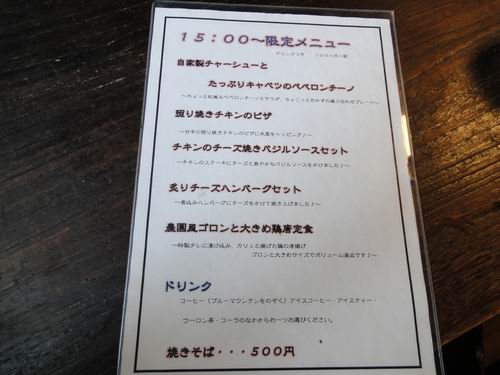 １５：００～限定メニュー
ドリンクつき　１０００円＋税
自家製チャーシューと
たっぷりキャベツのペペロンチーノ
～ちょっと和風なペペロンチーノとサラダ、ちょこっとおかずの盛り合わせプレート～
照り焼きチキンのピザ
～甘辛の照り焼きチキンのピザに水菜をトッピング♪～
チキンのチーズ焼きバジルソースセット
～チキンのステーキにチーズと爽やかなバジルソースをかけました♪～
炙りチーズハンバーグセット
～煮込みハンバーグにチーズをかけて焼き上げました♪～
農園風ゴロンと大きめ鶏唐定食
～特製タレに漬け込み、カリッと揚げた鶏の唐揚げ
ゴロンと大きめサイズでボリューム満点です♪～
ドリンク
コーヒー（ブルーマウンテンをのぞく）アイスコーヒー・アイスティー・
ウーロン茶・コーラのなかからお一つお選びください。
焼きそば・・・５００円